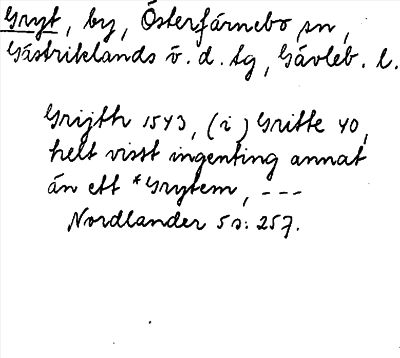 Gryt, by, Österfärnebo sn,
Gästriklands ö. d. tg, Gävleb. l.
Grijth 1543, (i) Gritte 40,
helt visst ingenting annat
än ett *Grytem, ---
Nordlander 5 s: 257.